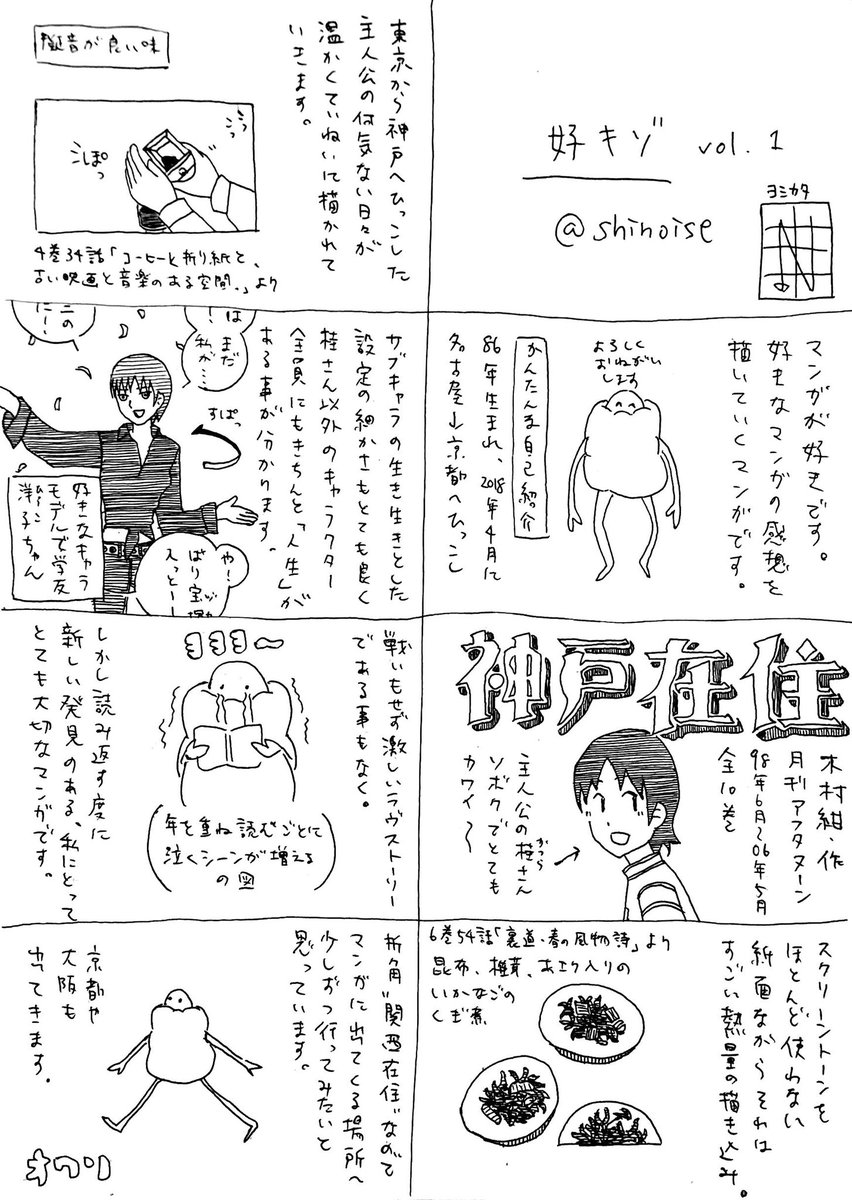 好キゾ vol.1
@shinoise
ヨミカタ
マンガが好きです。
好きなマンガの感想を
描いていくマンガです。
よろしく
おねがい
します
かんたんな自己紹介
86年生まれ、2018年4月に
名古屋→京都へひっこし
神戸在住
木村紺・作
月刊アフタヌーン
98年6月〜06年5月
全10巻
主人公の桂さん
かつら
ソボクでとても
カワイ〜
スクリーントーンを
ほとんど使わない
紙面ながらそれは
すごい熱量の描き込み。
6巻54話「裏道・春の風物詩」より
昆布、椎茸、あエリ入りの
いかなごの
くぎ煮
東京から神戸へひっこした
主人公の何気ない日々が
温かくていねいに描かれて
いきます。
擬音が良い味
こぽっ
4巻34話「コーヒーと折り紙と、
古い映画と音楽のある空間。」より
サブキャラの生き生きとした
設定の細かさもとても良く
桂さん以外のキャラクター
全員にもきちんと「人生」が
ある事が分かります。
はっ
まだ
私が…
ニの
に!
すぽっ
好きなキャラ
モデルで学友
洋子ちゃん
ひろこ
や!
ぱり宝
えっとー
戦いもせず激しいラヴストーリー
である事もなく。
ヨヨヨ〜
(年を重ね読むごとに
泣くシーンが増える
の図)
しかし読み返す度に
新しい発見のある、私にとって
とても大切なマンガです。
折角"関西在住"なので
マンガに出てくる場所へ
少しずつ行ってみたいと
思っています。
京都や
大阪も
出てきます。
オワリ